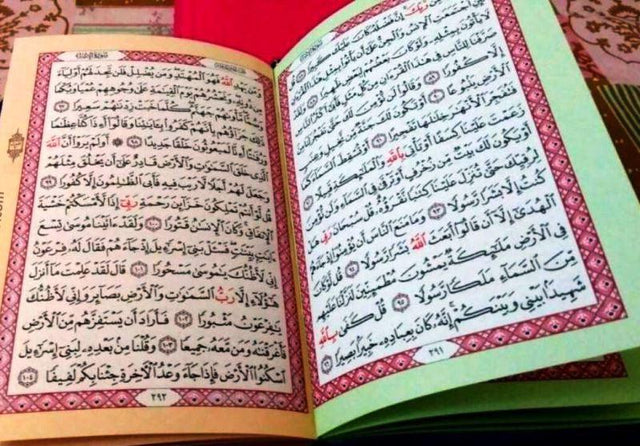 رَبِّكَ إِنَّ فَضْلَهُۥ كَانَ عَلَيْكَ
ٱجْتَمَعَتِ ٱلْإِنسُ وَٱلْجِنُّ عَلَىٰٓ أَن يَأْتُوا۟ بِمِثْلِ هَٰذَا
لَا يَأْتُونَ بِمِثْلِهِۦ وَلَوْ كَانَ بَعْضُهُمْ لِبَعْضٍ ظَهِيرًا ٨٨
صَرَّفْنَا لِلنَّاسِ فِى هَٰذَا ٱلْقُرْءَانِ مِن كُلِّ مَثَلٍ فَأَبَىٰٓ
إِلَّا كُفُورًا ٨٩ وَقَالُوا۟ لَن نُّؤْمِنَ لَكَ حَتَّىٰ تَفْجُرَ لَنَا مِنَ
ٱلْأَرْضِ يَنۢبُوعًا ٩٠ أَوْ تَكُونَ لَكَ جَنَّةٌ مِّن نَّخِيلٍ وَعِنَبٍ
فَتُفَجِّرَ ٱلْأَنْهَٰرَ خِلَٰلَهَا تَفْجِيرًا ٩١ أَوْ تُسْقِطَ ٱلسَّمَآءَ كَمَا
زَعَمْتَ عَلَيْنَا كِسَفًا أَوْ تَأْتِىَ بِٱللَّهِ وَٱلْمَلَٰٓئِكَةِ قَبِيلًا
أَوْ يَكُونَ لَكَ بَيْتٌ مِّن زُخْرُفٍ أَوْ تَرْقَىٰ فِى ٱلسَّمَآءِ وَلَن نُّؤْمِنَ
لِرُقِيِّكَ حَتَّىٰ تُنَزِّلَ عَلَيْنَا كِتَٰبًا نَّقْرَؤُهُۥ قُلْ سُبْحَانَ رَبِّى هَلْ
كُنتُ إِلَّا بَشَرًا رَّسُولًا ٩٣ وَمَا مَنَعَ ٱلنَّاسَ أَن يُؤْمِنُوٓا۟ إِذْ جَآءَهُمُ
ٱلْهُدَىٰٓ إِلَّآ أَن قَالُوٓا۟ أَبَعَثَ ٱللَّهُ بَشَرًا رَّسُولًا ٩٤ قُل لَّوْ كَانَ
فِى ٱلْأَرْضِ مَلَٰٓئِكَةٌ يَمْشُونَ مُطْمَئِنِّينَ لَنَزَّلْنَا عَلَيْهِم
مِّنَ ٱلسَّمَآءِ مَلَكًا رَّسُولًا ٩٥ قُلْ كَفَىٰ بِٱللَّهِ
شَهِيدًۢا بَيْنِى وَبَيْنَكُمْ إِنَّهُۥ كَانَ بِعِبَادِهِۦ خَبِيرًۢا بَصِيرًا ٩٦
٢٩١
وَمَن يَهْدِ ٱللَّهُ فَهُوَ ٱلْمُهْتَدِ وَمَن يُضْلِلْ فَلَن تَجِدَ لَهُمْ أَوْلِيَآءَ
مِن دُونِهِۦ وَنَحْشُرُهُمْ يَوْمَ ٱلْقِيَٰمَةِ عَلَىٰ وُجُوهِهِمْ عُمْيًا وَبُكْمًا
وَصُمًّا مَّأْوَىٰهُمْ جَهَنَّمُ كُلَّمَا خَبَتْ زِدْنَٰهُمْ سَعِيرًا ٩٧
ذَٰلِكَ جَزَآؤُهُم بِأَنَّهُمْ كَفَرُوا۟ بِـَٔايَٰتِنَا وَقَالُوٓا۟ أَءِذَا كُنَّا عِظَٰمًا
وَرُفَٰتًا أَءِنَّا لَمَبْعُوثُونَ خَلْقًا جَدِيدًا ٩٨ أَوَلَمْ يَرَوْا۟ أَنَّ ٱللَّهَ
ٱلَّذِى خَلَقَ ٱلسَّمَٰوَٰتِ وَٱلْأَرْضَ قَادِرٌ عَلَىٰٓ أَن يَخْلُقَ مِثْلَهُمْ
وَجَعَلَ لَهُمْ أَجَلًا لَّا رَيْبَ فِيهِ فَأَبَى ٱلظَّٰلِمُونَ إِلَّا كُفُورًا ٩٩
قُل لَّوْ أَنتُمْ تَمْلِكُونَ خَزَآئِنَ رَحْمَةِ رَبِّىٓ إِذًا لَّأَمْسَكْتُمْ خَشْيَةَ
ٱلْإِنفَاقِ وَكَانَ ٱلْإِنسَٰنُ قَتُورًا ١٠٠ وَلَقَدْ ءَاتَيْنَا مُوسَىٰ تِسْعَ
ءَايَٰتٍۭ بَيِّنَٰتٍ فَسْـَٔلْ بَنِىٓ إِسْرَٰٓءِيلَ إِذْ جَآءَهُمْ فَقَالَ لَهُۥ فِرْعَوْنُ
إِنِّى لَأَظُنُّكَ يَٰمُوسَىٰ مَسْحُورًا ١٠١ قَالَ لَقَدْ عَلِمْتَ مَآ أَنزَلَ
هَٰٓؤُلَآءِ إِلَّا رَبُّ ٱلسَّمَٰوَٰتِ وَٱلْأَرْضِ بَصَآئِرَ وَإِنِّى لَأَظُنُّكَ
يَٰفِرْعَوْنُ مَثْبُورًا ١٠٢ فَأَرَادَ أَن يَسْتَفِزَّهُم مِّنَ ٱلْأَرْضِ
فَأَغْرَقْنَٰهُ وَمَن مَّعَهُۥ جَمِيعًا ١٠٣ وَقُلْنَا مِنۢ بَعْدِهِۦ لِبَنِىٓ إِسْرَٰٓءِيلَ
ٱسْكُنُوا۟ ٱلْأَرْضَ فَإِذَا جَآءَ وَعْدُ ٱلْءَاخِرَةِ جِئْنَا بِكُمْ لَفِيفًا ١٠٤
٢٩٢